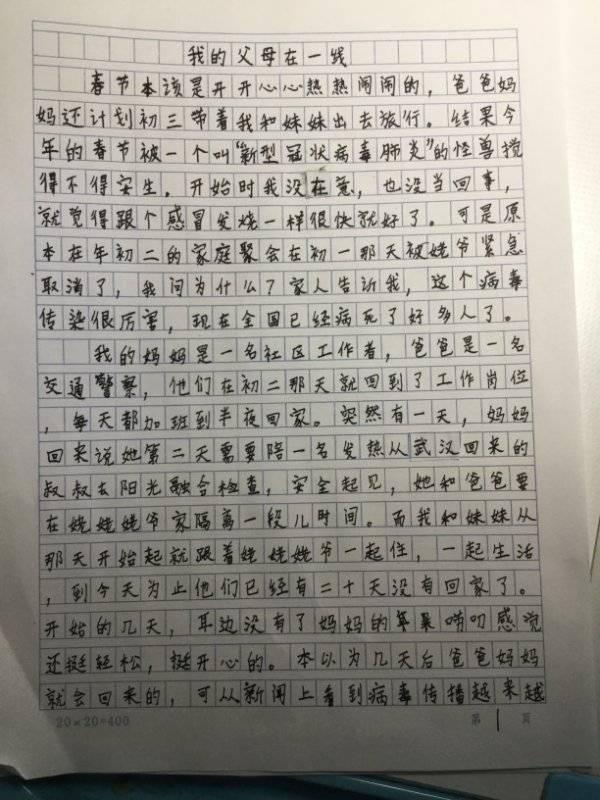 我的父母在一线
春节本该是开开心心热热闹闹的，爸爸妈
妈还计划初三带着我和妹妹出去旅行。结果今
年的春节被一个叫“新型冠状病毒肺炎”的怪兽搅
得不得安生。开始时我没在意，也没当回事，
就觉得跟个感冒发烧一样很快就好了。可是原
本在年初二的家庭聚会在初一那天被姥爷紧急
取消了，我问为什么？家人告诉我，这个病毒
传染很厉害，现在全国已经病死了好多人了。
我的妈妈是一名社区工作者，爸爸是一名
交通警察，他们在初二那天就回到了工作岗位
，每天都加班到半夜回家。突然有一天，妈妈
回来说她第二天需要陪一名发热从武汉回来的
叔叔去阳光融合检查，安全起见，她和爸爸要
在姥姥姥爷家隔离一段儿时间。而我和妹妹从
那天开始起就跟着姥姥姥爷一起住，一起生活
，到今天为止他们已经有二十天没有回家了。
开始的几天，耳边没有了妈妈的唠叨感觉
还挺轻松，挺开心的。本以为几天后爸爸妈妈
就会回来的，可从新闻上看到病毒传播越来越
20×20=400 第1页